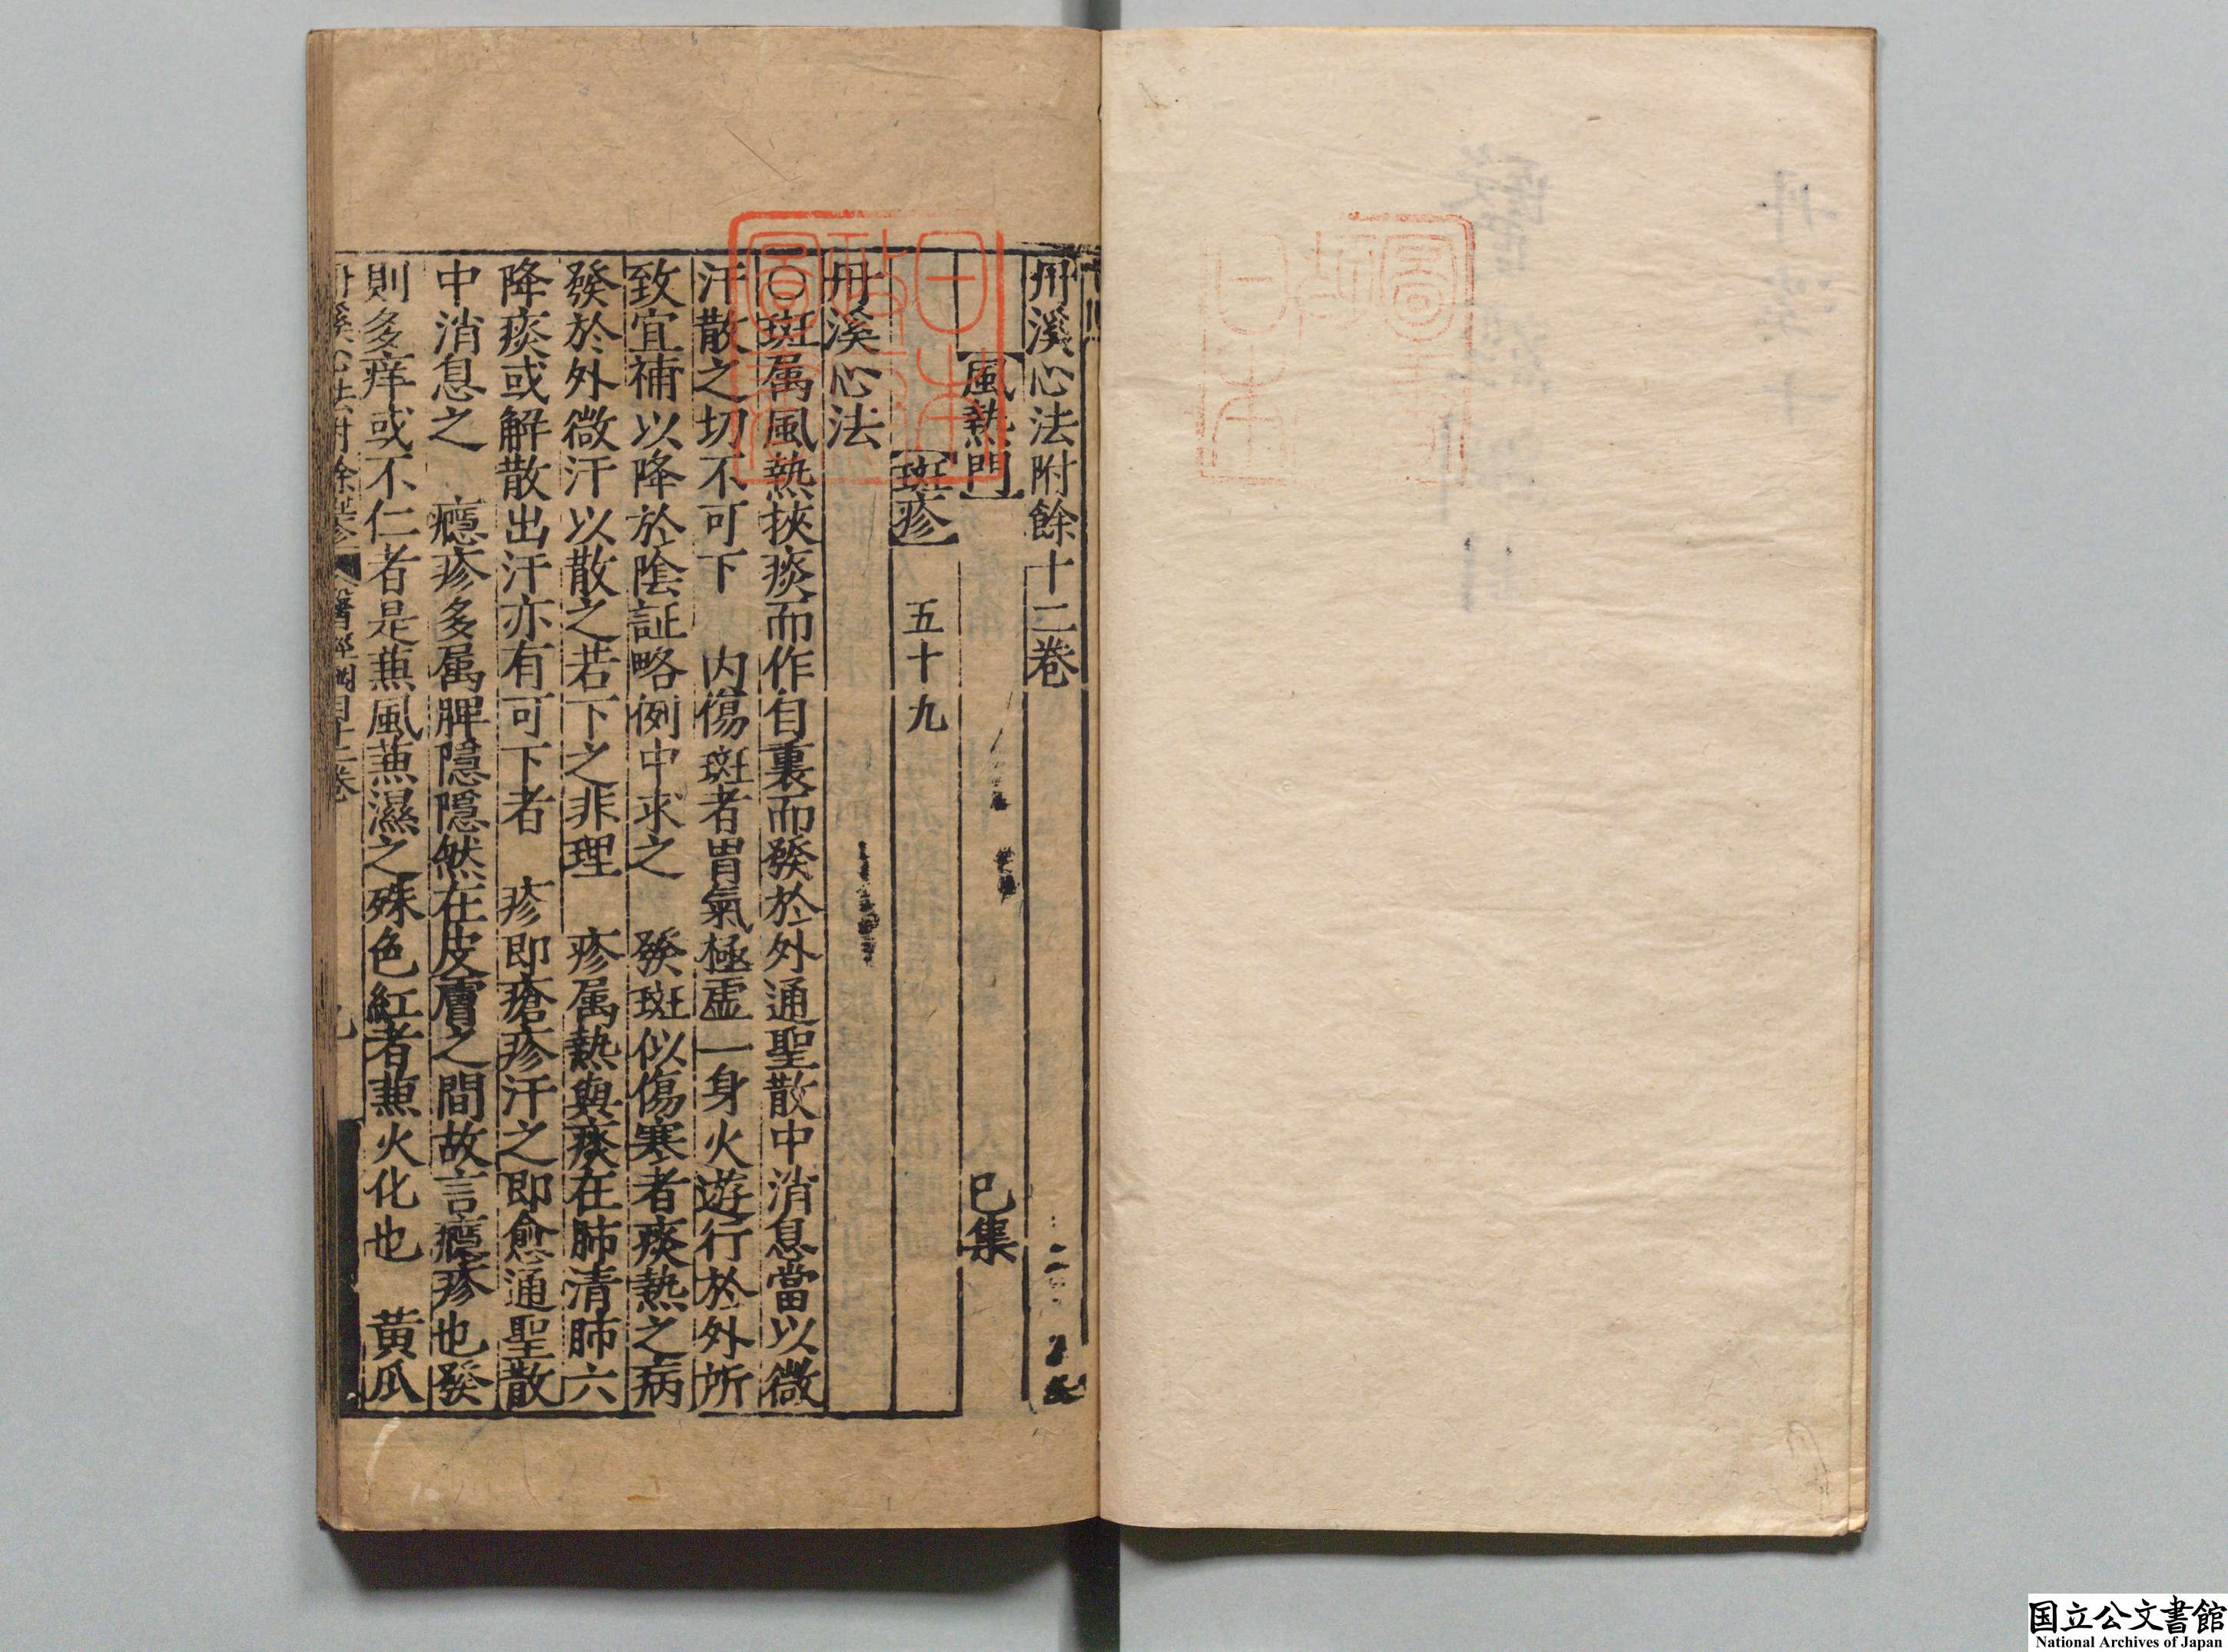 丹溪心法附餘十二卷
【風熱門】 巳集
【斑疹】 五十九
丹溪心法
○斑属風熱挾痰而作自裏而發於外通聖散中消息當以微
汗散之切不可下 内傷斑者胃氣極虚一身火遊行於外所
致宜補以降於陰証略例中求之 發斑似傷寒者痰熱之病
發於外微汗以散之若下之非理 疹属熱與痰在肺清肺六
降痰或解散出汗亦有可下者 疹即瘡疹汗之即愈通聖散
中消息之 癮疹多属脾隱隱然在皮膚之間故言癮疹也發
則多痒或不仁者是蕪風蕪濕之殊色紅者蕪火化也 黄瓜
国立公文書館
National Archives of Japan